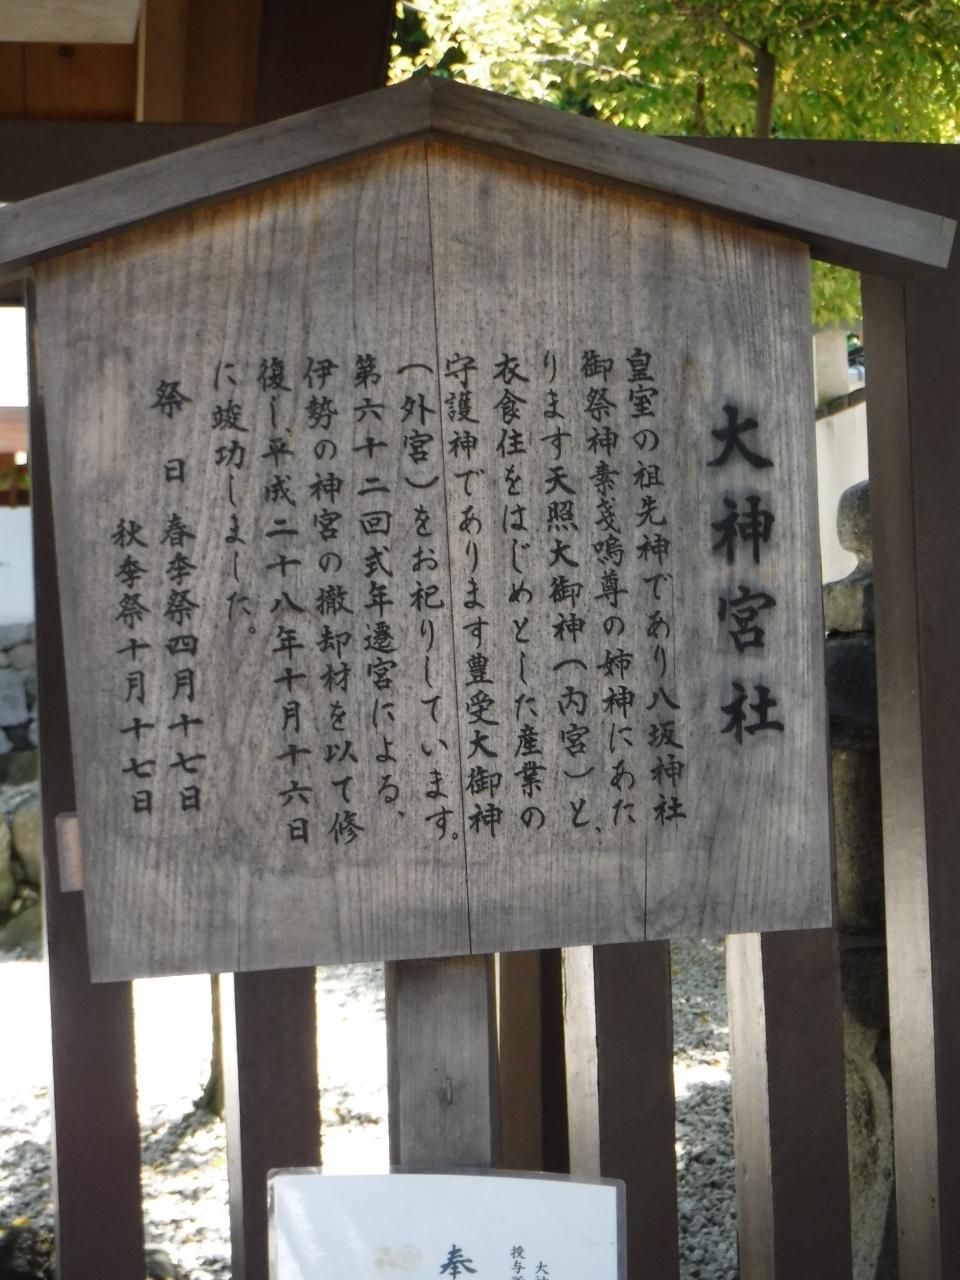 大神宮社
皇室の祖先神であり八坂神社
御祭神素戔嗚尊の姉神にあた
ります天照大御神(内宮)と、
衣食住をはじめとした産業の
守護神であります豊受大御神
(外宮)をお祀りしています。
第六十二回式年遷宮による、
伊勢の神宮の撤却材を以て修
復し平成二十八年十月十六日
に竣功しました。
祭日 春季祭四月十七日
秋季祭十月十七日
大神
授与所
奉